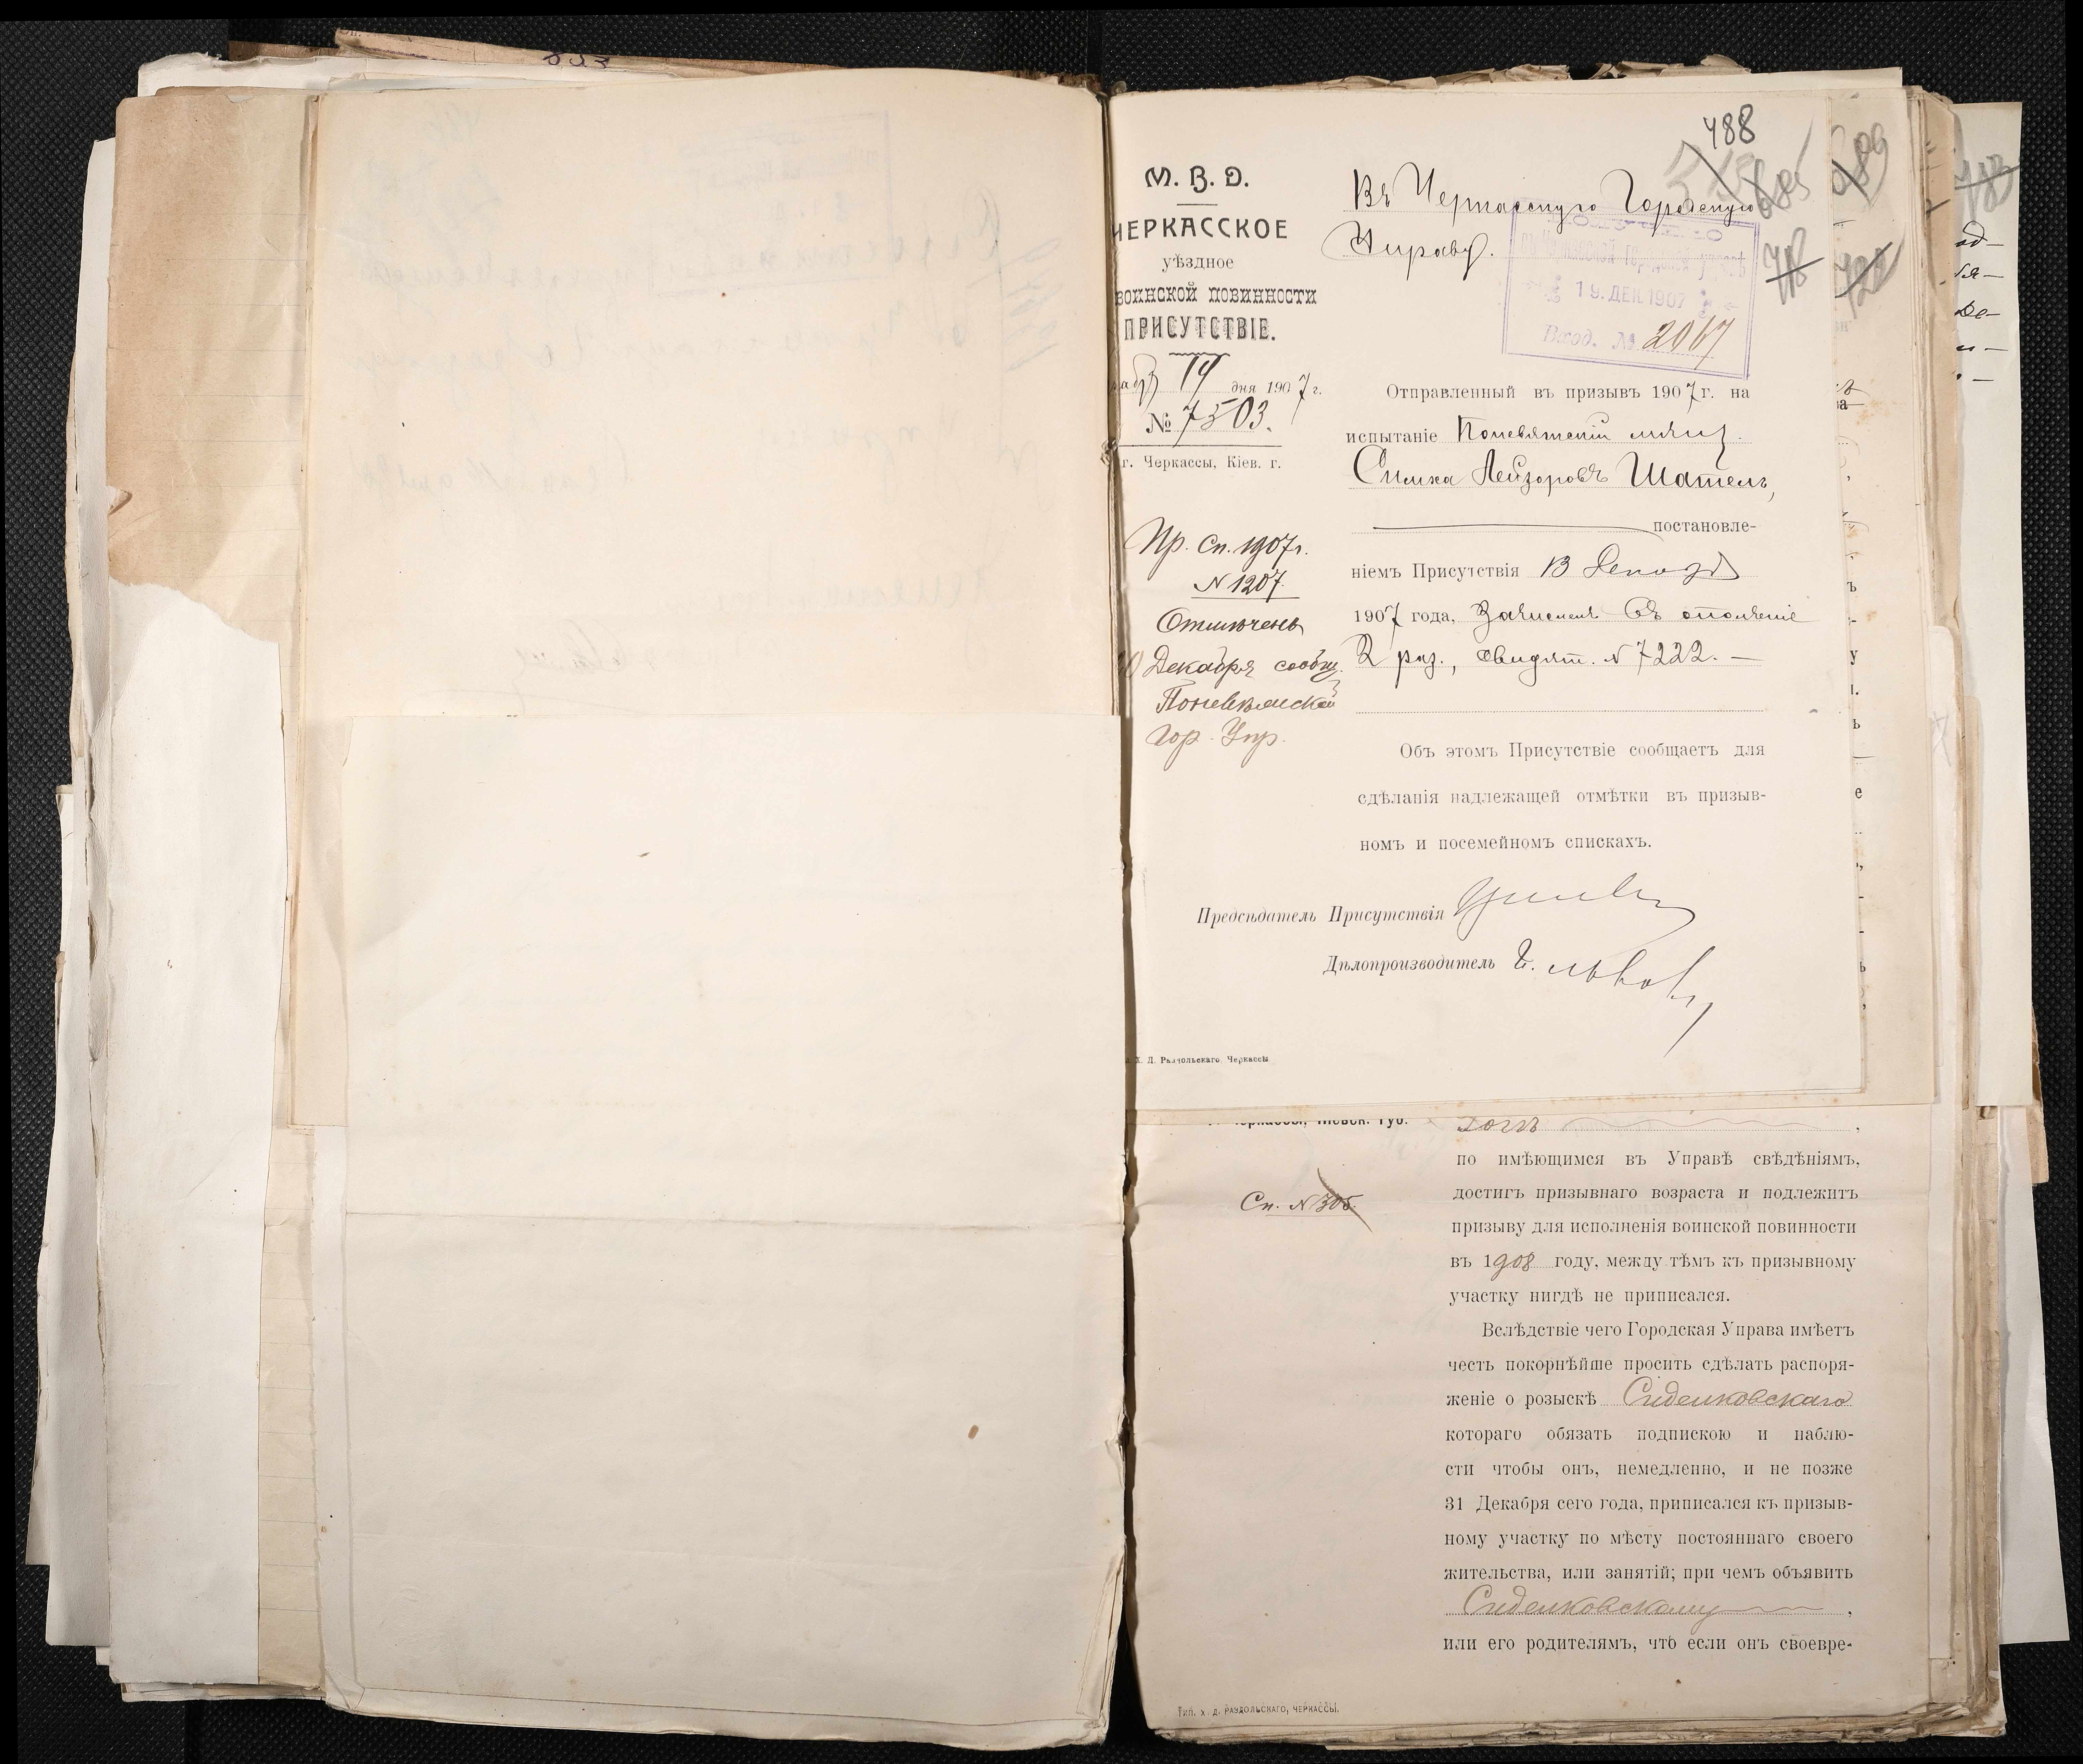 488
685
689
718
722
783
М. В. Д.
ЧЕРКАССКОЕ
уѣздное
ВОИНСКОЙ ПОВИННОСТИ
ПРИСУТСТВІЕ.
дня 1907 г.
№ 7503.
г. Черкассы, Кіев. г.
Въ Черкасскую Городскую
Управу.
ПОЛУЧЕНО
въ Черкасской Городской управѣ
19. ДЕК. 1907
Вход. № 2067
Отправленный въ призывъ 1907 г. на
испытаніе
Симха Лейзоровъ Шатель,
постановле-
ніемъ Присутствія 13 Декабря
1907 года, Зачисленъ въ ополченіе
2 раз., свидѣт. № 7222. —
Пр. Сп. 1907 г.
№ 1207.
Отмѣченъ
Декабря сообщ.
Поневѣжской
Гор. Упр.
Объ этомъ Присутствіе сообщаетъ для
сдѣланія надлежащей отмѣтки въ призыв-
номъ и посемейномъ спискахъ.
Предсѣдатель Присутствія
Дѣлопроизводитель
Х. Д. Раздольскаго, Черкассы
Черкассы, Кіевск. губ.
по имѣющимся въ Управѣ свѣдѣніямъ,
достигъ призывнаго возраста и подлежитъ
призыву для исполненія воинской повинности
въ 1908 году, между тѣмъ къ призывному
участку нигдѣ не приписался.
Сп. № 305.
Вслѣдствіе чего Городская Управа имѣетъ
честь покорнѣйше просить сдѣлать распоря-
женіе о розыскѣ Сиденковскаго
котораго обязать подпискою и наблю-
сти чтобы онъ, немедленно, и не позже
31 Декабря сего года, приписался къ призыв-
ному участку по мѣсту постояннаго своего
жительства, или занятій; при чемъ объявить
Сиденковскому,
или его родителямъ, что если онъ своевре-
Тип. Х. Д. РАЗДОЛЬСКАГО, ЧЕРКАССЫ.